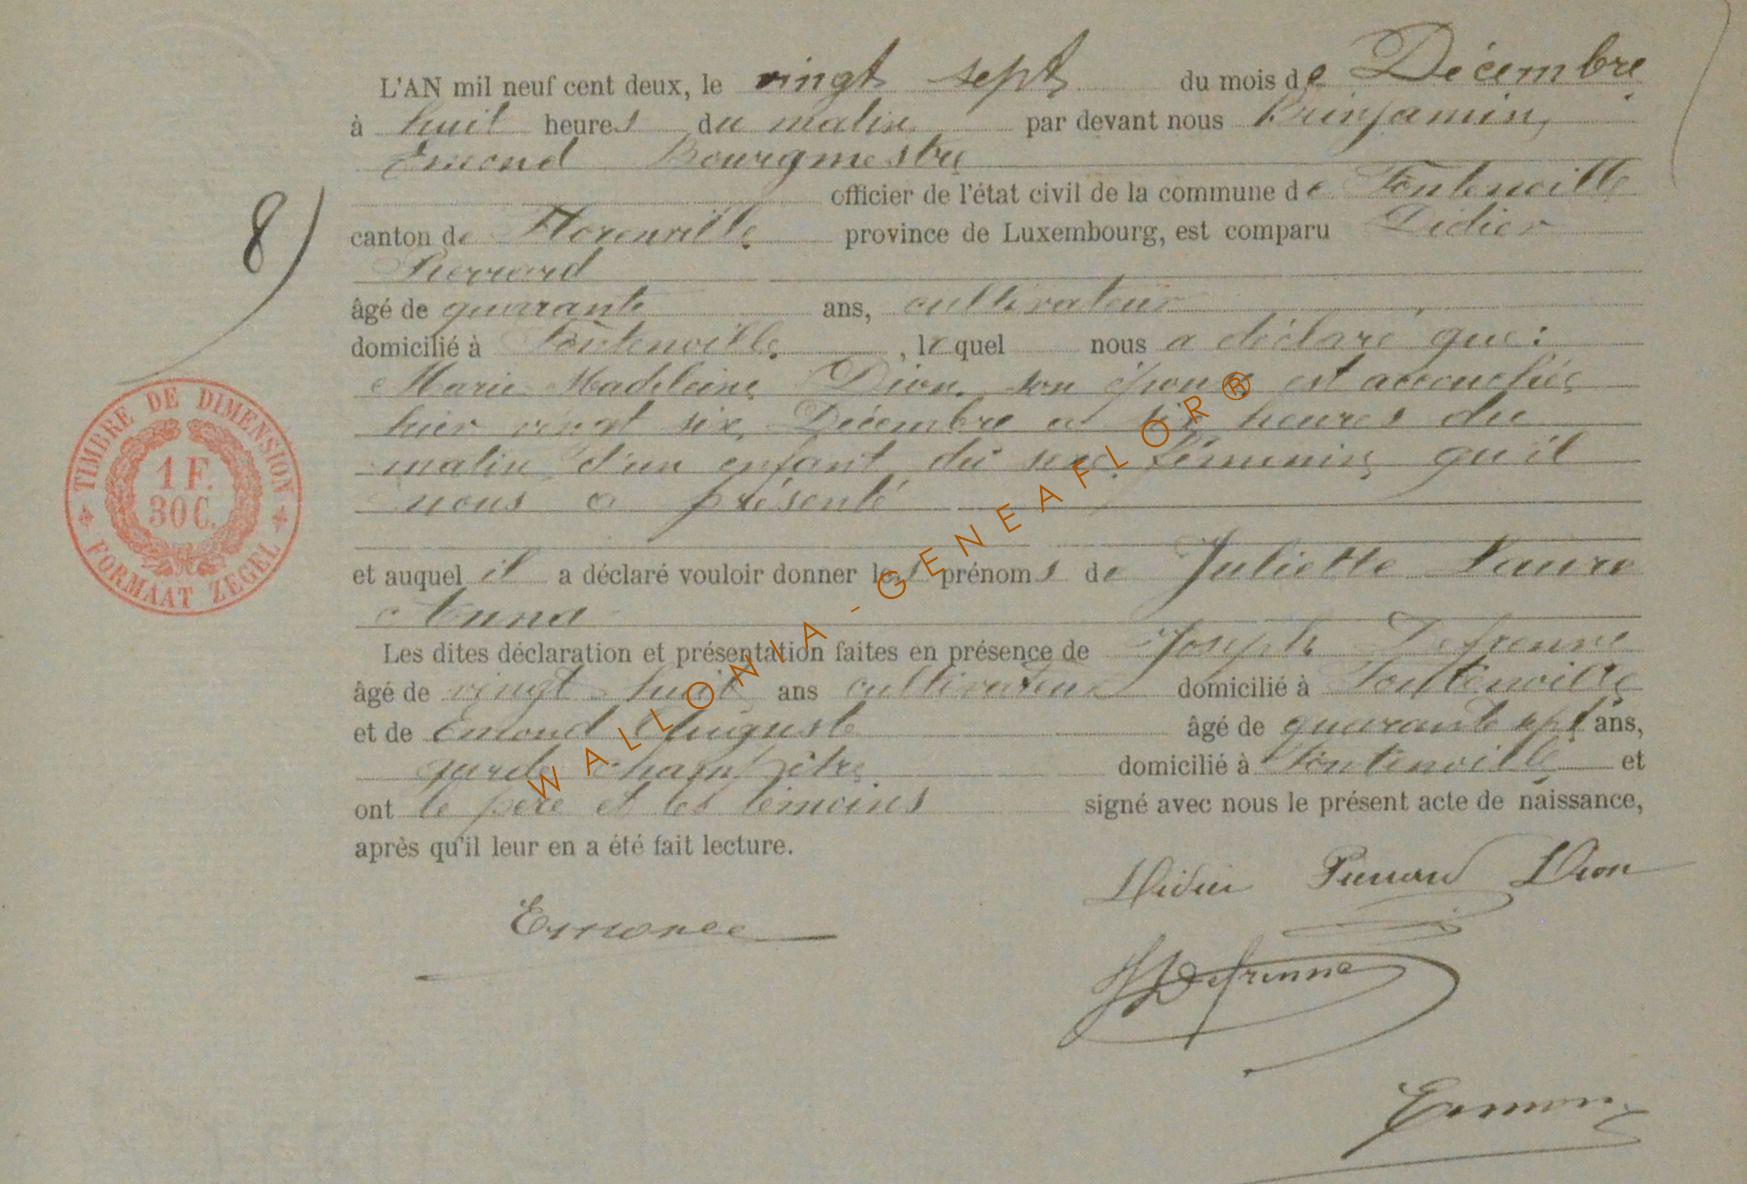 L'AN mil neuf cent deux, le vingt sept du mois de Décembre
à huit heures du matin par devant nous Brinjamin,
Emond Bourgmestre
officier de l'état civil de la commune de Fontenoille
8)
canton de Florenville province de Luxembourg, est comparu Didier
Pierrard
âgé de quarante ans, cultivateur
domicilié à Fontenoille, lequel nous a déclaré que:
Marie Madeleine Dion son épouse est accouchée
hier vingt six Décembre a six heures du
matin d'un enfant du sexe féminin qu'il
nous a présenté
et auquel il a déclaré vouloir donner les prénoms de Juliette Laure
Anna
Les dites déclaration et présentation faites en présence de Joseph Defrenne
âgé de vingt huit ans cultivateur domicilié à Fontenoille
et de Emond Auguste âgé de quarante sept ans,
garde champêtre domicilié à Fontenoille et
ont le père et les témoins signé avec nous le présent acte de naissance,
après qu'il leur en a été fait lecture.
Didier Pierrard Dion
Emond
J Defrenne
Emond
TIMBRE DE DIMENSION
1 F.
30 C.
FORMAAT ZEGEL
WALLONIA-GENEAFLOR®